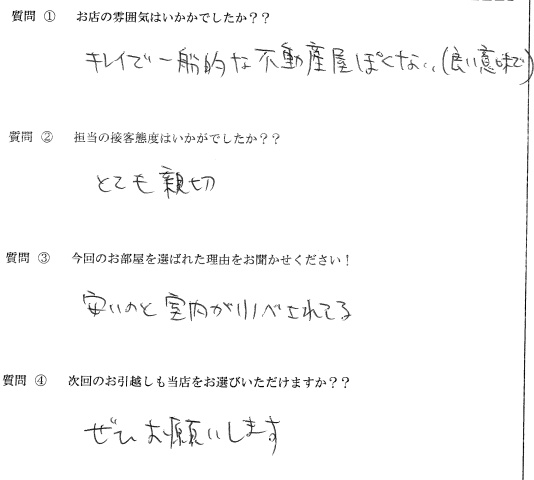 質問 ① お店の雰囲気はいかかでしたか？？
キレイで一般的な不動産屋ぽくない、(良い意味で)
質問 ② 担当の接客態度はいかがでしたか？？
とても親切
質問 ③ 今回のお部屋を選ばれた理由をお聞かせください！
安いのと室内がリノベされてる
質問 ④ 次回のお引越しも当店をお選びいただけますか？？
ぜひお願いします